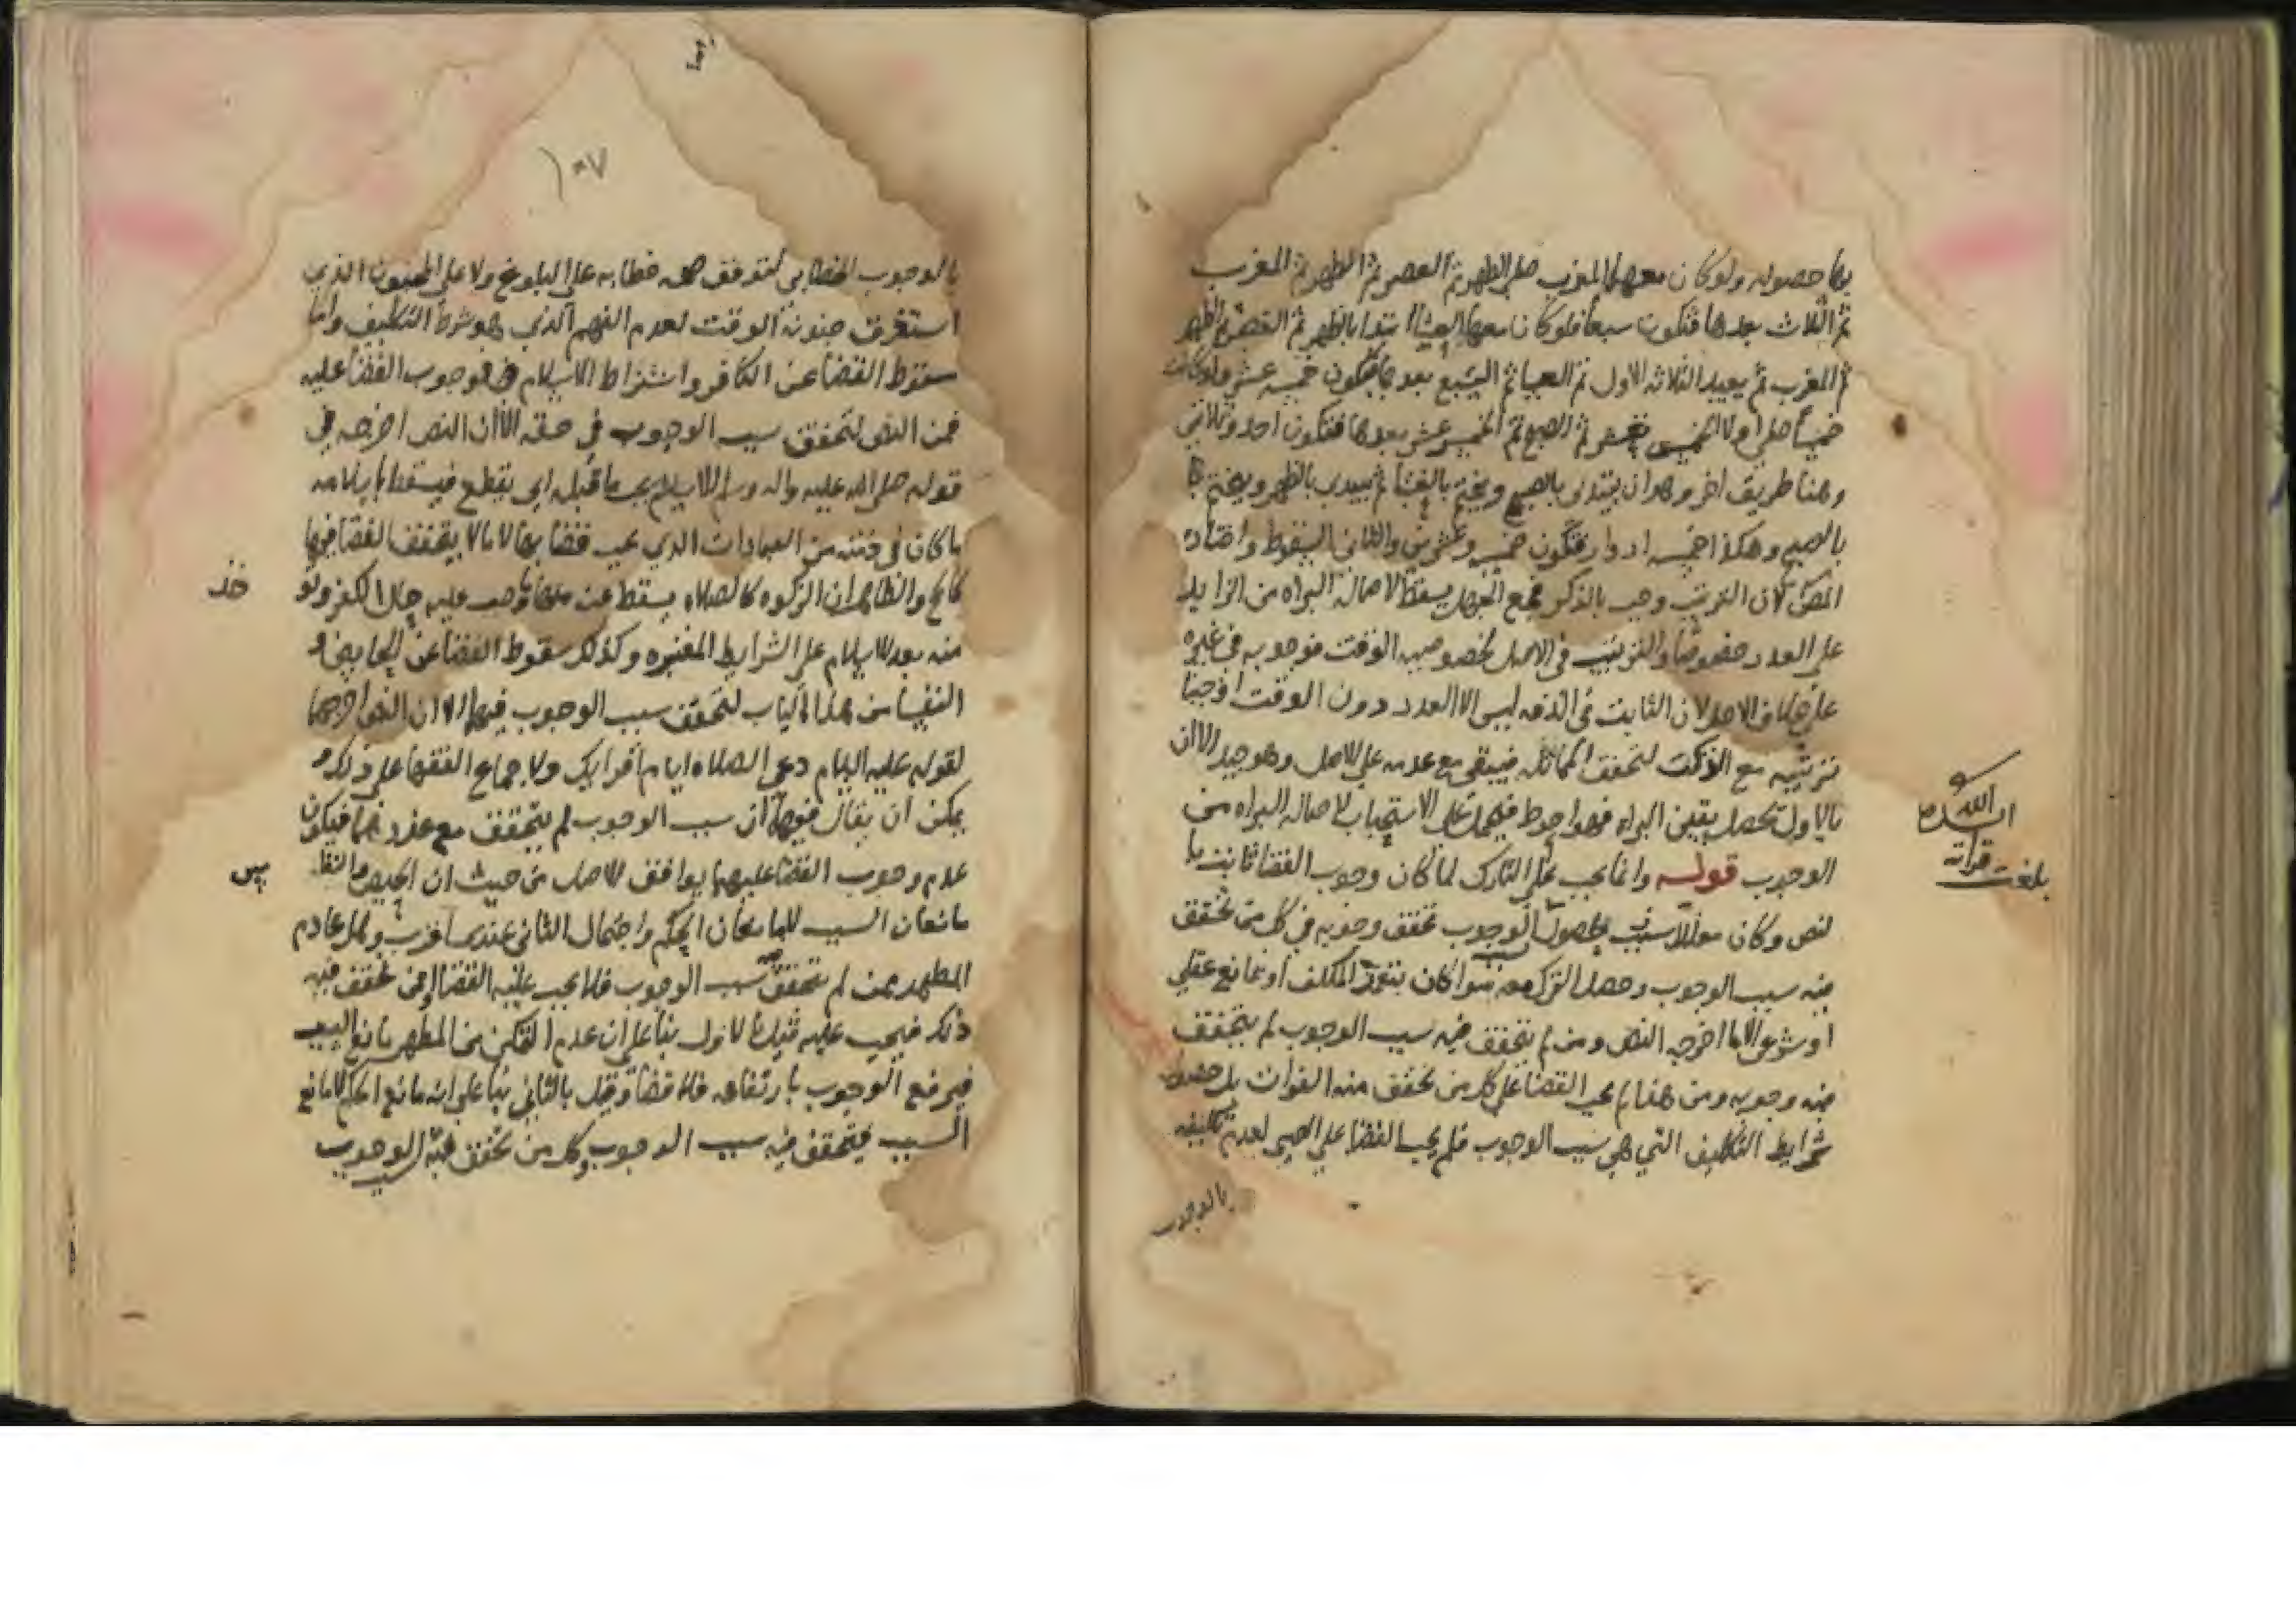 بها حصوله ولو كان معهما المغرب صلى الظهر ثم العصر ثم الظهر ثم المغرب
ثم الثلاث بعدها فتكون سبعا فلو كان معها العشا ابتدا بالظهر ثم العصر ثم الظهر
ثم المغرب ثم يعيد الثلاثه الاول ثم العشا ثم السبع بعدها فتكون خمسه عشر ولو كانت
خمسا صلى اولا الخمس عشر ثم الصبح ثم الخمس عشر بعدها فتكون احد وثلاثين
وهنا طريق اخر وهو ان يبتدئ بالصبح ويختم بالعشا ثم يبتدى بالظهر ويختم
بالصبح وهكذا خمسه ادوار فتكون خمسه وعشرين والثانى السقوط واختاره
المص لان الترتيب وجب بالذكر فمع الجهل يسقط لاصالة البراه من الزايد
على العدد خصوصا والترتيب فى الاصل لخصوصيه الوقت فوجوبه فى غيره
على خلاف الاصل لان الثابت فى الذمه ليس الا العدد دون الوقت اوجبنا
ترتيبه مع الذكر لتحقق المماثله فيبقى مع عدمه على الاصل وهو جيد الا ان
بالاول تحصل يقين البراه فهو احوط فيحمل على الاستحباب لاصاله البراه من
الوجوب قوله وانما يجب على التارك لما كان وجوب القضا ثابت با
لنص وكان معللا بسبب لحصول الوجوب تحقق وجوبه فى كل من تحقق
سبب
فيه سبب الوجوب وحصل الترك معه سوا كان بتفويت المكلف او بمانع عقلي
او شرعى الا ما اخرجه النص ومن لم يتحقق فيه سبب الوجوب لم يتحقق
فيه وجوبه ومن هنا لم يجب القضا على كل من تحقق منه الفوات بل حصول
شرايط التكليف التي هي سبب الوجوب فلم يجب القضا على الصبى لعدم تكليفه
بالوجوب
بلغت قراته
الله
١٠٧
بالوجوب الخطابى لتوقف صحه خطابه على البلوغ ولا على المجنون الذى
استغرق جنونه الوقت لعدم الفهم الذي هو شرط التكليف واما
سقوط القضا عن الكافر واشتراط الاسلام فى وجوب القضا عليه
فمن النص لتحقق سبب الوجوب في حقه الا ان النص اخرجه في
قوله صلى الله عليه واله وسلم الاسلام يجب ما قبله اى يقطع فيسقط باسلامه
ما كان فى ذمته من العبادات الذي يجب قضا بها لا ما لا يتحقق القضا فيها
كالحج والظاهر ان الزكوه كالصلاه يسقط عنه منها ما وجب عليه حال الكفر ولو
منه بعد الاسلام على الشرايط المعتبره وكذلك سقوط القضا عن الحايض و
النفسا من هذا الباب لتحقق سبب الوجوب فيهما الا ان النص اخرجهما
لقوله عليه السلام دعى الصلاه ايام اقرايك ولاجماع الفقها على ذلك و
يمكن ان يقال فيهما ان سبب الوجوب لم يتحقق مع عذرهما فيكون
عدم وجوب القضا عليهما يوافق للاصل من حيث ان الحيض والنفا
س
مانعان السبب للمانعان الحكم واحتمال الثانى عندى اقرب وهل عادم
المطهر ممن لم يتحقق فيه سبب الوجوب فلا يجب عليه القضا او ممن تحقق فيه
ذلك فيجب عليه قيل بالاول بنا على ان عدم التمكن من المطهر مانع السبب
فيرفع الوجوب بارتفاعه فلا قضا وقيل بالثانى بنا على انه مانع الحكم لا مانع
السبب فيتحقق فيه سبب الوجوب وكل من تحقق فيه سبب الوجوب